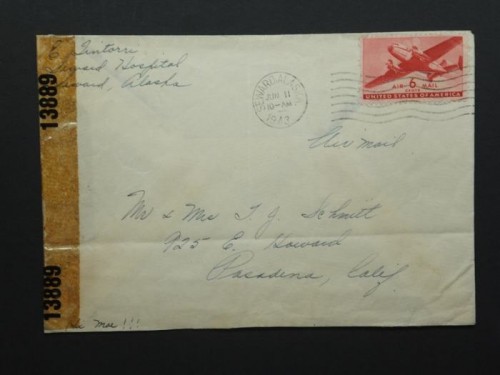 Seward Hospital
Seward, Alaska
13889
SEWARD, ALASKA
JUN 11
10-AM
1943
AIR 6 MAIL
CENTS
UNITED STATES OF AMERICA
Air mail
Mr & Mrs T. J. Schmitt
925 E. Howard
Pasadena, Calif
13889
Mae !!!